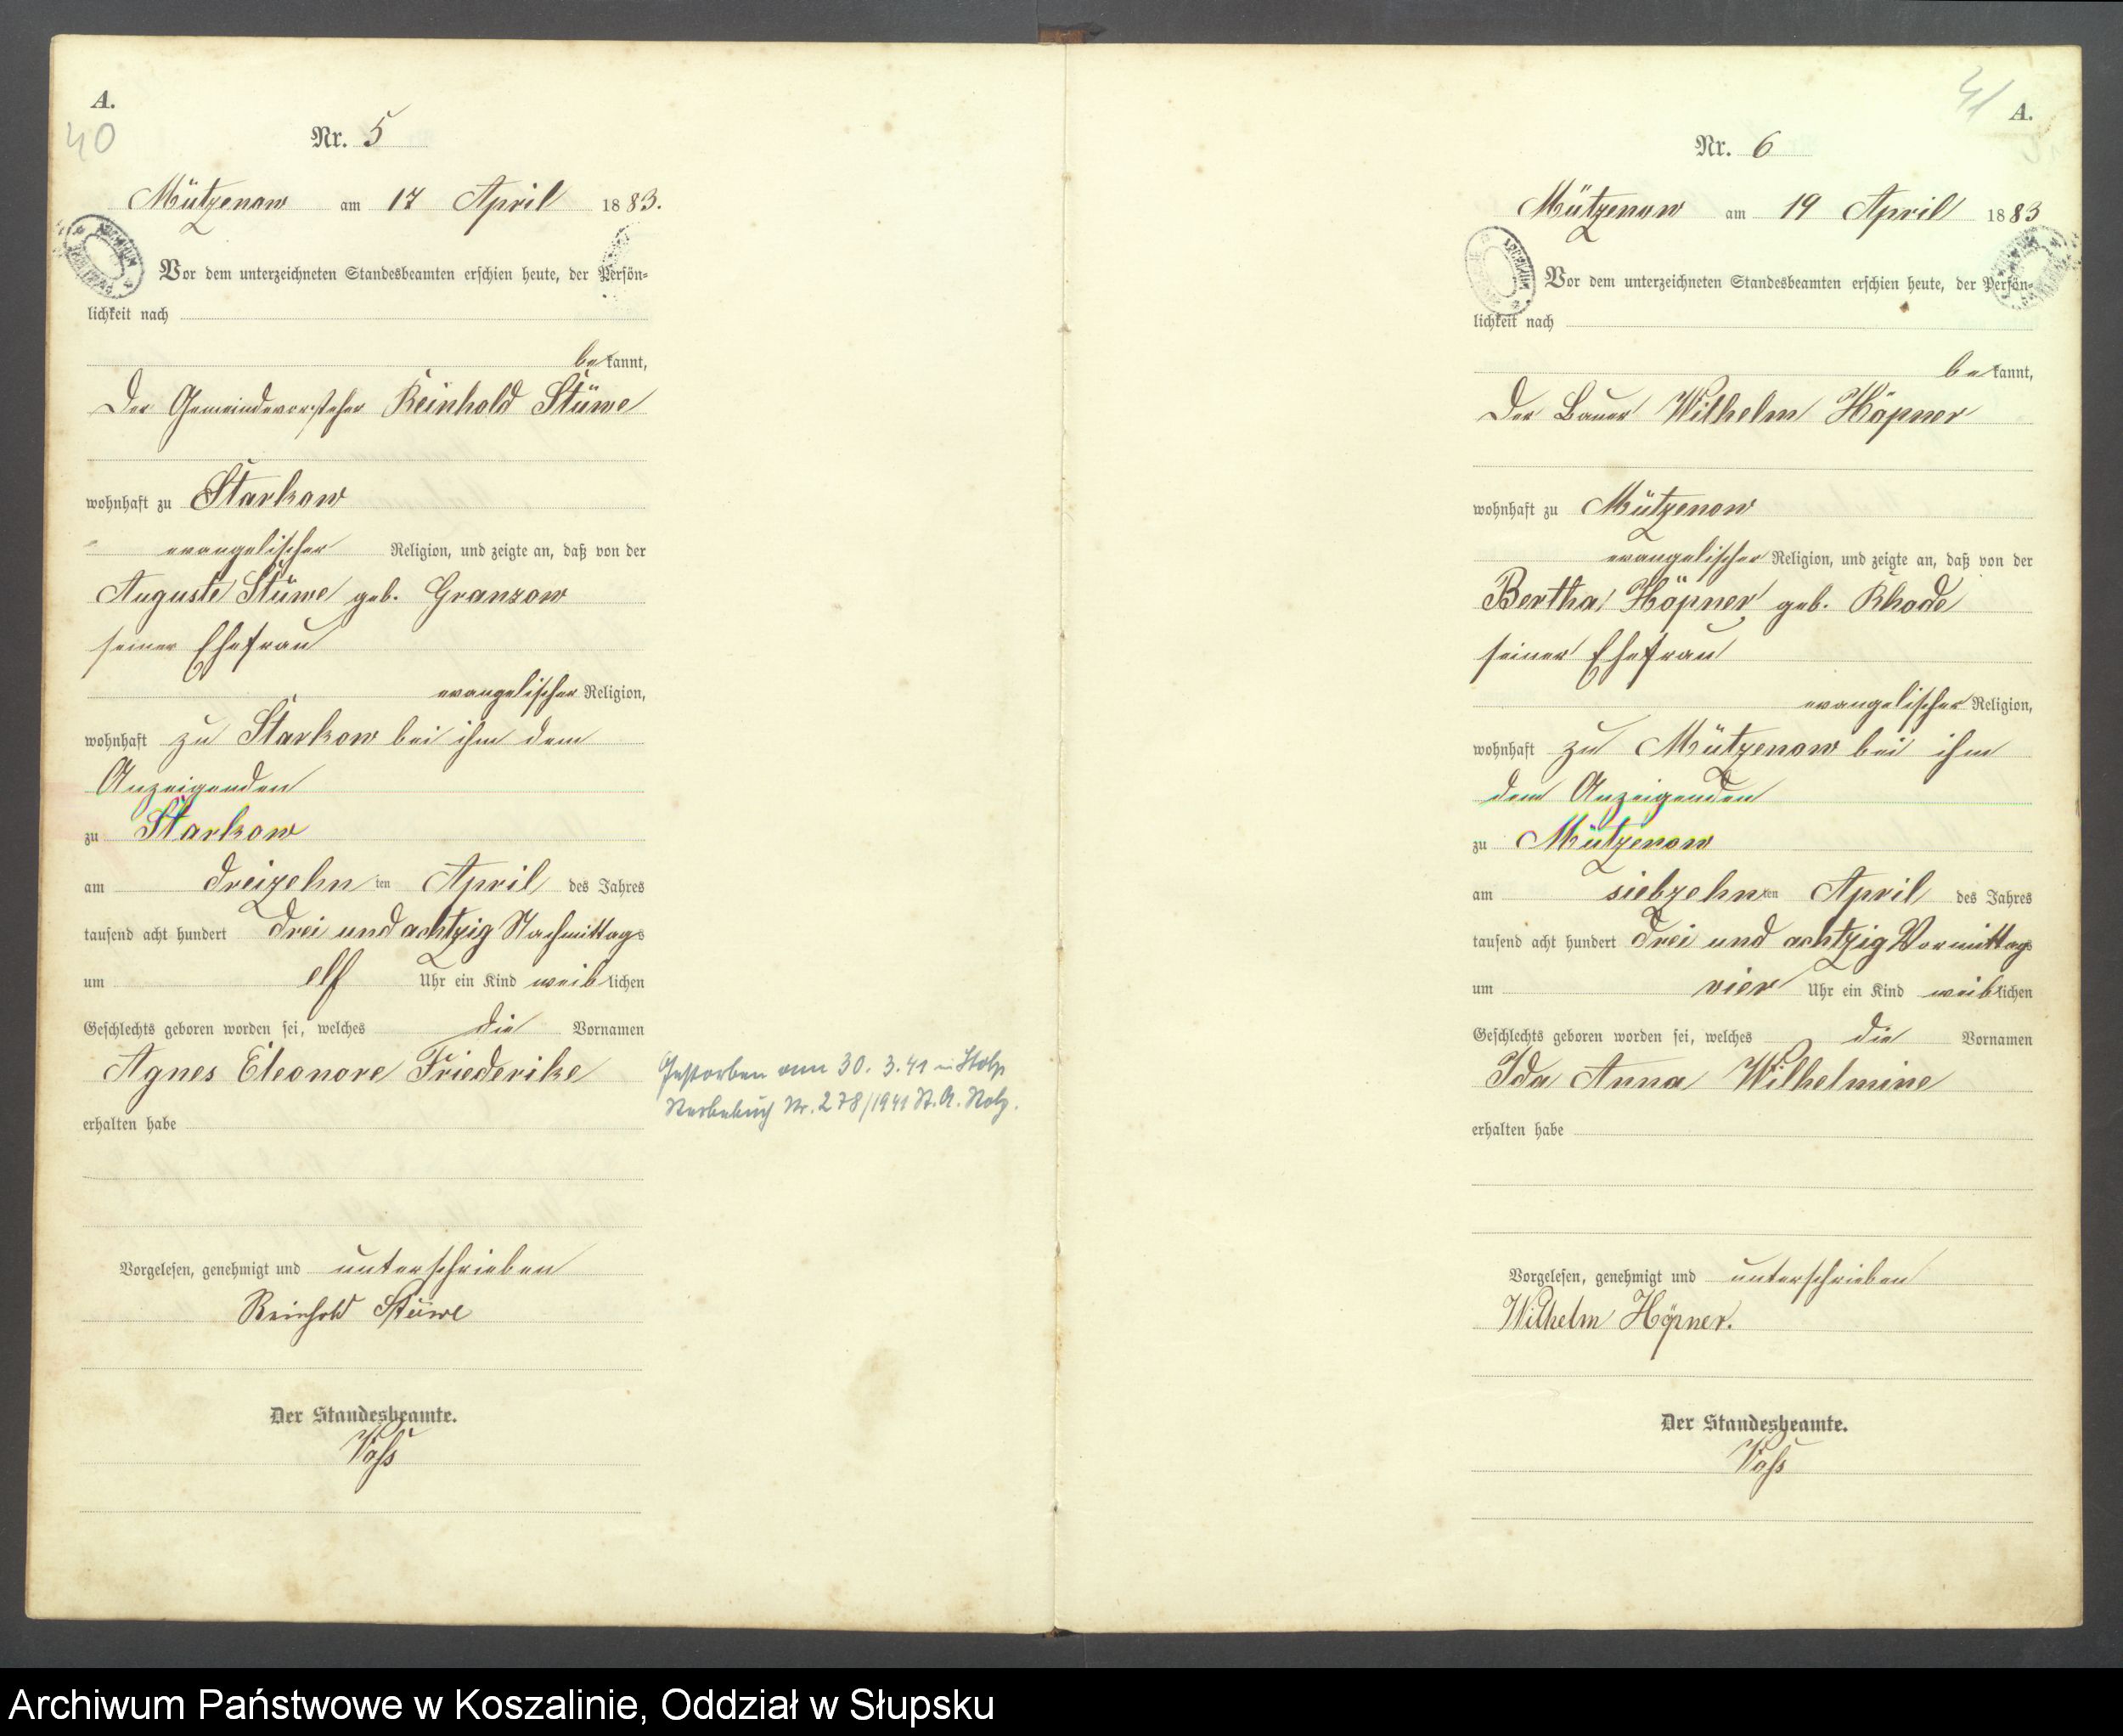 A.
40
Nr. 5
Mützenow am 17 April 1883.
Vor dem unterzeichneten Standesbeamten erschien heute, der Persön-
lichkeit nach
bekannt,
Der Gemeindevorsteher Reinhold Stüwe
wohnhaft zu Starkow
evangelischer Religion, und zeigte an, daß von der
Auguste Stüwe geb. Granzow
seiner Ehefrau
evangelischer Religion,
wohnhaft zu Starkow bei ihm dem
Anzeigenden
zu Starkow
am dreizehnten April des Jahres
tausend acht hundert drei und achtzig Nachmittags
um elf Uhr ein Kind weiblichen
Geschlechts geboren worden sei, welches die Vornamen
Agnes Eleonore Friederike
erhalten habe
Vorgelesen, genehmigt und unterschrieben
Reinhold Stüwe
Der Standesbeamte.
Voss
Gestorben am 30. 3. 41 in Stolp
Sterbebuch Nr. 278/1941 St. A. Stolp.
41
A.
Nr. 6
Mützenow am 19 April 1883
Vor dem unterzeichneten Standesbeamten erschien heute, der Persön-
lichkeit nach
bekannt,
Der Bauer Wilhelm Höpner
wohnhaft zu Mützenow
evangelischer Religion, und zeigte an, daß von der
Bertha Höpner geb. Rhode
seiner Ehefrau
evangelischer Religion,
wohnhaft zu Mützenow bei ihm
dem Anzeigenden
zu Mützenow
am siebzehnten April des Jahres
tausend acht hundert drei und achtzig Vormittags
um vier Uhr ein Kind weiblichen
Geschlechts geboren worden sei, welches die Vornamen
Ida Anna Wilhelmine
erhalten habe
Vorgelesen, genehmigt und unterschrieben
Wilhelm Höpner.
Der Standesbeamte.
Voss
Archiwum Państwowe w Koszalinie, Oddział w Słupsku